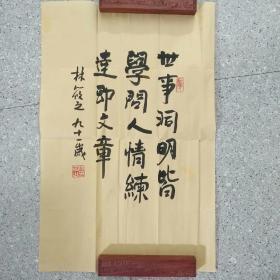 世事洞明皆
學問人情練
達即文章
林筱之九十一歲